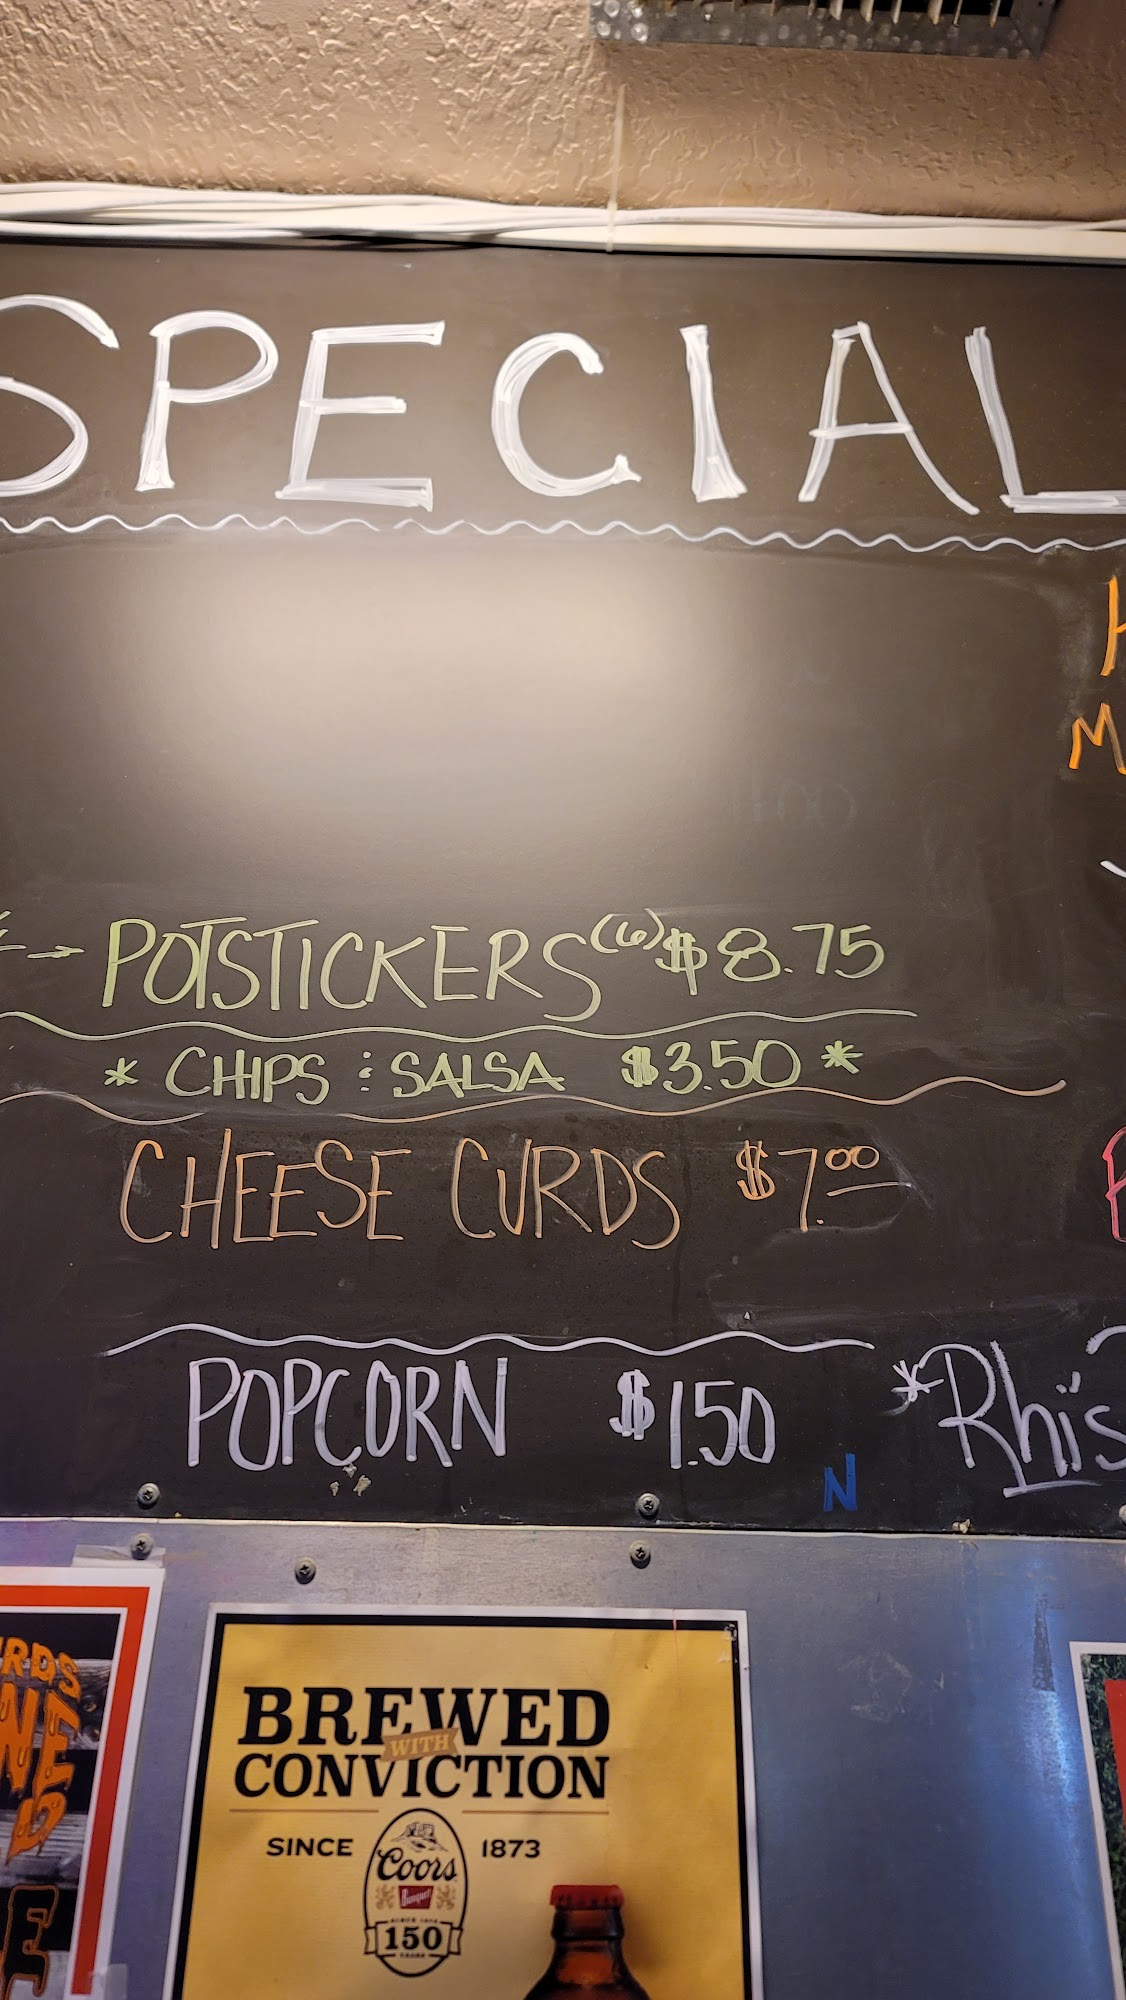 SPECIAL
POTSTICKERS (6) $8.75
* CHIPS & SALSA $3.50 *
CHEESE CURDS $7.00
POPCORN $1.50
*Rhi's
N
BREWED
WITH
CONVICTION
SINCE 1873
Coors
Banquet
150
YEARS